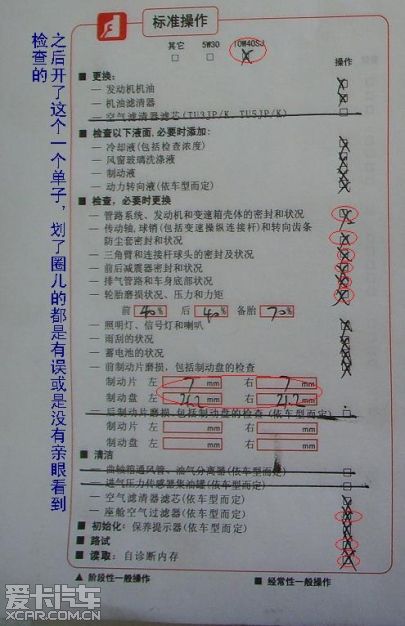 标准操作
其它 5W30 10W40SJ
操作
■ 更换:
— 发动机机油
— 机油滤清器
— 空气滤清器滤芯(TU3JP/K、TU5JP/K)
■ 检查以下液面,必要时添加:
— 冷却液(包括检查浓度)
— 风窗玻璃洗涤液
— 制动液
— 动力转向液(依车型而定)
■ 检查,必要时更换
— 管路系统、发动机和变速箱壳体的密封和状况
— 传动轴,球销(包括变速操纵连接杆)和转向齿条
防尘套密封和状况
— 三角臂和连接杆球头的密封及状况
— 前后减震器密封和状况
— 排气管路和车身底部状况
— 轮胎磨损状况、压力和力矩
前 40% 后 40% 备胎 70%
— 照明灯、信号灯和喇叭
— 雨刮的状况
— 蓄电池的状况
— 前制动片磨损,包括制动盘的检查
制动片 左 7 mm 右 7 mm
制动盘 左 mm 右 mm
— 后制动片磨损,包括制动盘的检查(依车型而定)
制动片 左 mm 右 mm
制动盘 左 mm 右 mm
■ 清洁
— 曲轴箱通风管、油气分离器(依车型而定)
— 进气压力传感器集油罐(依车型而定)
— 空气滤清器滤芯(依车型而定)
— 座舱空气过滤器(依车型而定)
■ 初始化: 保养提示器(依车型而定)
■ 路试
■ 读取: 自诊断内存
▲ 阶段性一般操作 ■ 经常性一般操作
之后开了这个一个单子,划了圈儿的都是有误或是没有亲眼看到
检查的
爱卡汽车
XCAR.COM.CN